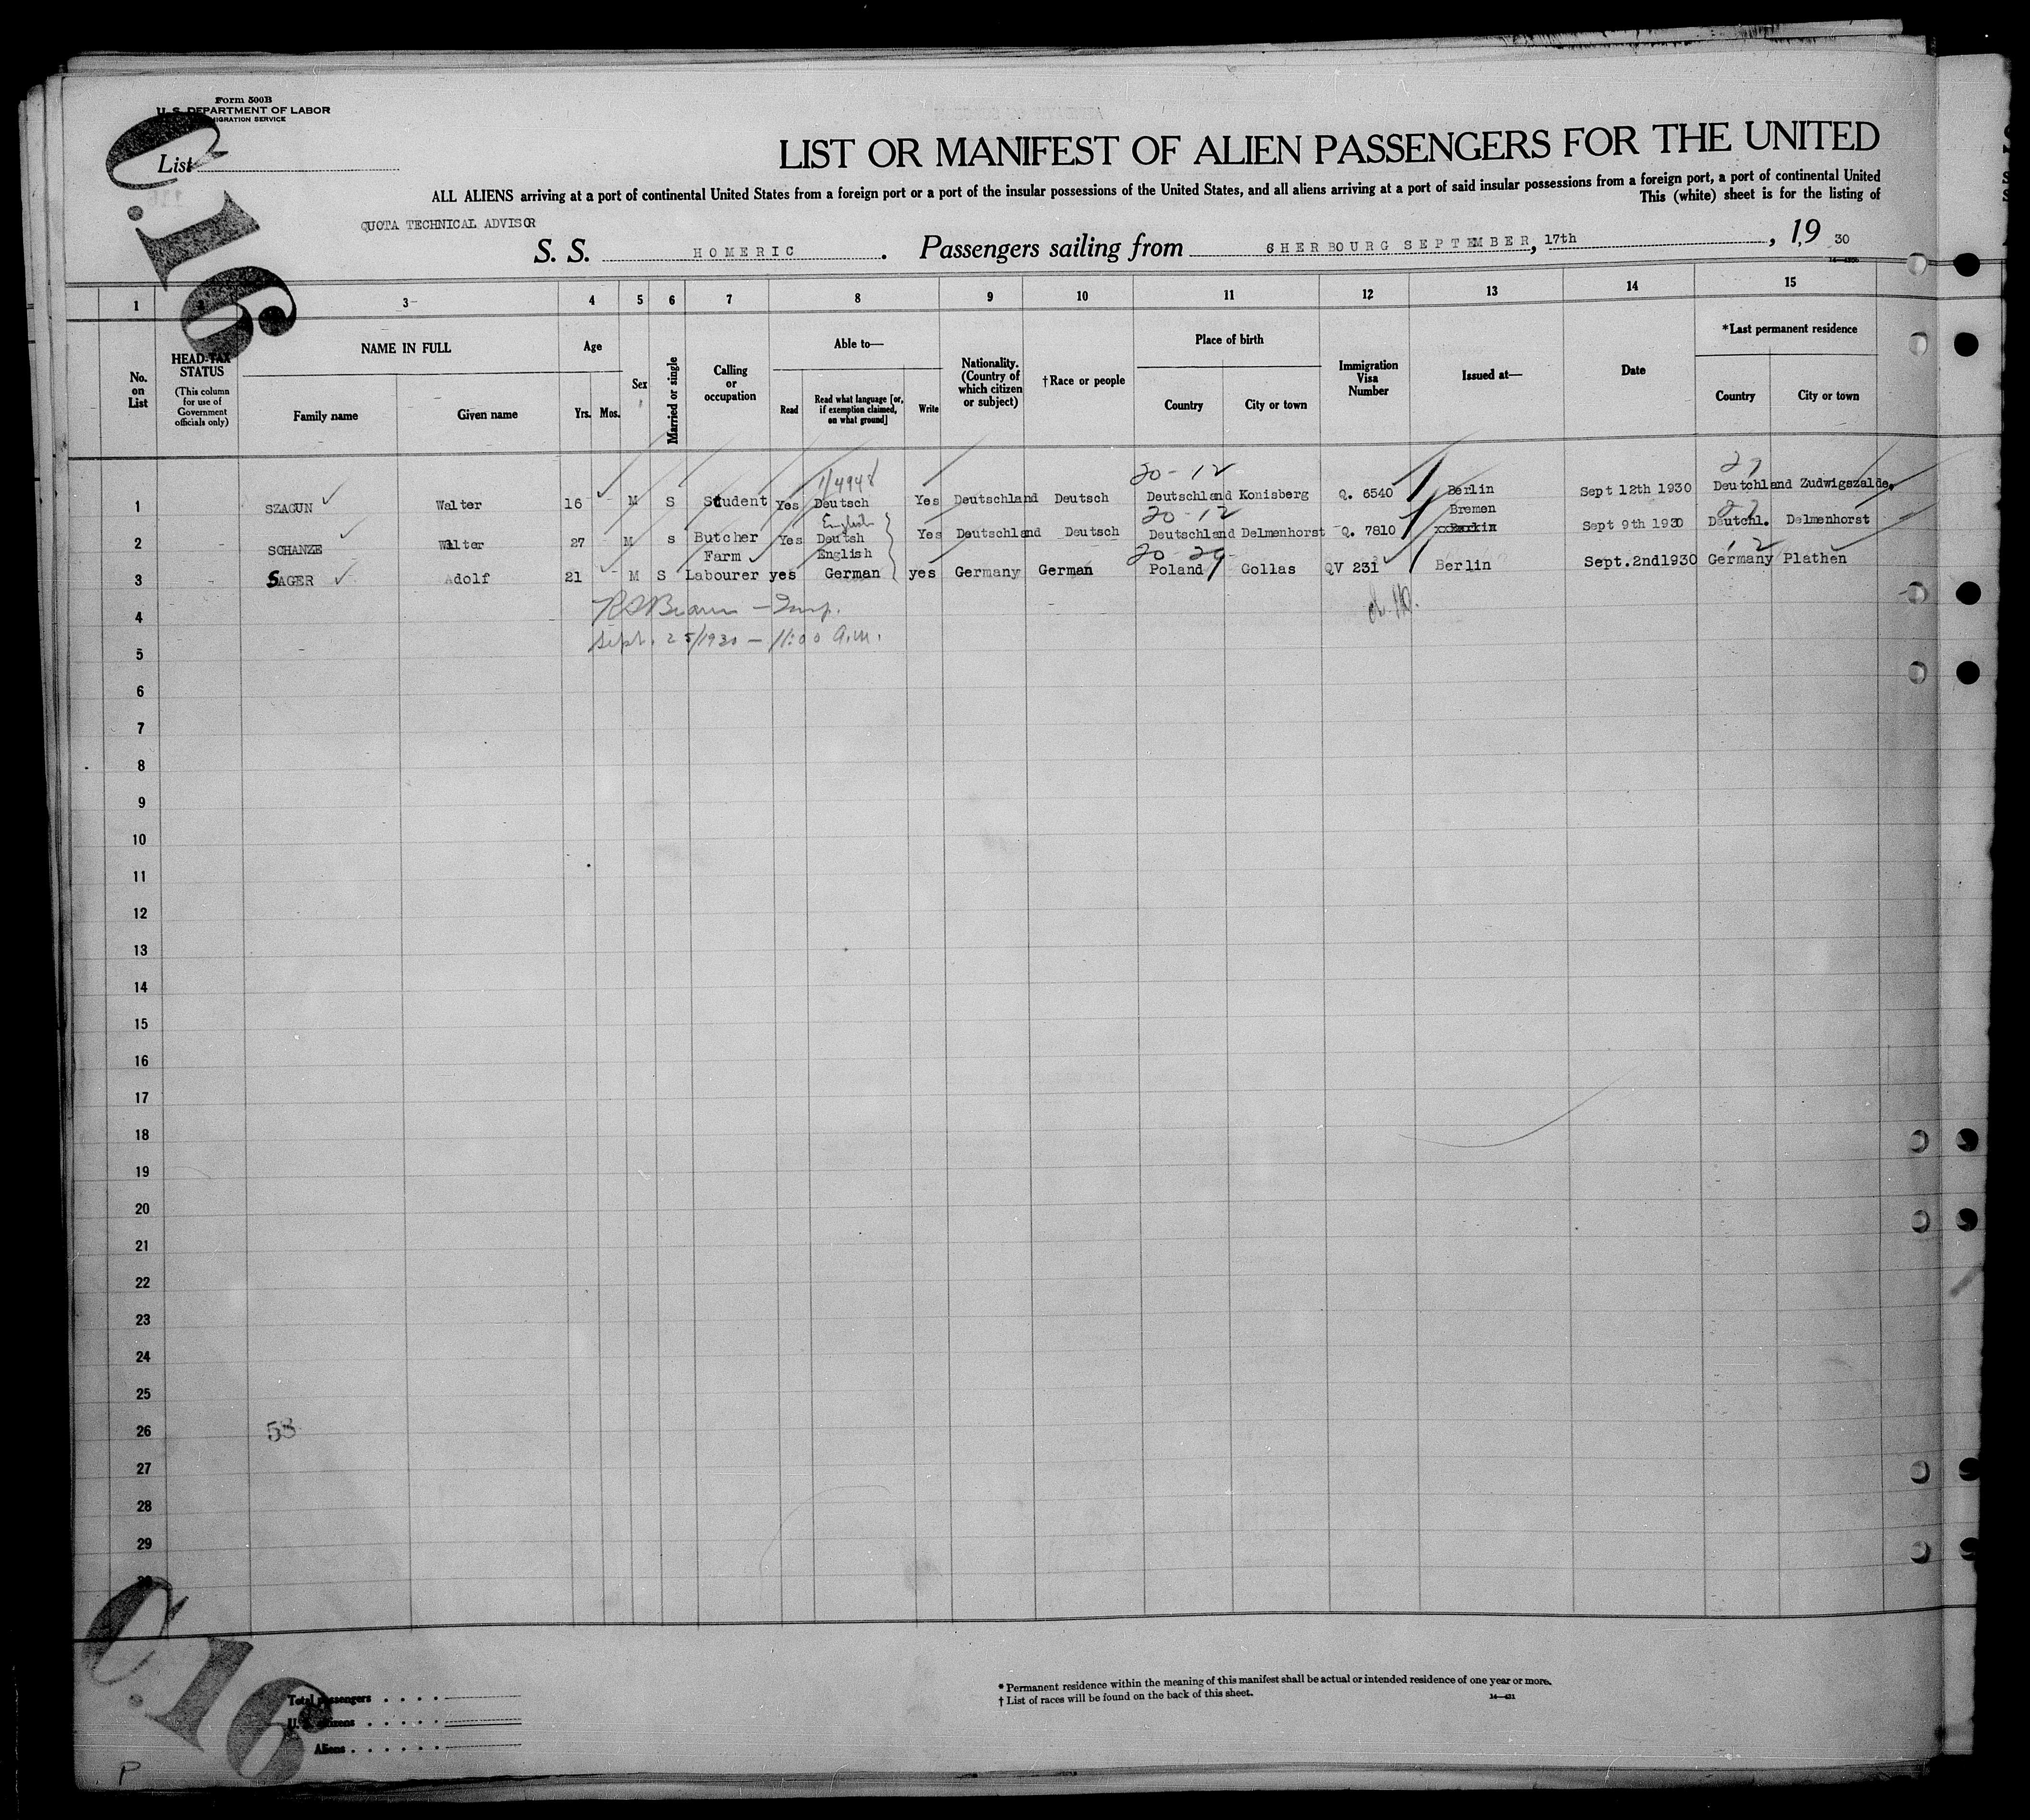 Form 500B
U. S. DEPARTMENT OF LABOR
IMMIGRATION SERVICE
List
C.16
LIST OR MANIFEST OF ALIEN PASSENGERS FOR THE UNITED
ALL ALIENS arriving at a port of continental United States from a foreign port or a port of the insular possessions of the United States, and all aliens arriving at a port of said insular possessions from a foreign port, a port of continental United
This (white) sheet is for the listing of
QUOTA TECHNICAL ADVISOR
S. S. HOMERIC. Passengers sailing from CHERBOURG SEPTEMBER, 17th, 19 30
1 2 3 4 5 6 7 8 9 10 11 12 13 14 15
No. on List
HEAD-TAX STATUS
(This column for use of Government officials only)
NAME IN FULL
Family name Given name
Age
Yrs. Mos.
Sex
Married or single
Calling or occupation
Able to—
Read Read what language [or, if exemption claimed, on what ground] Write
Nationality. (Country of which citizen or subject)
†Race or people
Place of birth
Country City or town
Immigration Visa Number
Issued at—
Date
*Last permanent residence
Country City or town
1/4948 20-12 27
1 SZAGUN Walter 16 M S Student Yes Deutsch Yes Deutschland Deutsch Deutschland Konisberg Q. 6540 Berlin Sept 12th 1930 Deutchland Zudwigszalde.
English 20-12 Bremen
2 SCHANZE Walter 27 M S Butcher Yes Deutsh Yes Deutschland Deutsch Deutschland Delmenhorst Q. 7810 xxBerlin Sept 9th 1930 Deutchl. Delmenhorst
Farm English 20-29
3 SAGER Adolf 21 M S Labourer yes German yes Germany German Poland Gollas QV 231 Berlin Sept.2nd1930 Germany Plathen
4
Sept. 25/1930 — 11:00 A.M.
5
6
7
8
9
10
11
12
13
14
15
16
17
18
19
20
21
22
23
24
25
26 53
27
28
29
30
C.16
Total passengers
U. S. citizens
Aliens
* Permanent residence within the meaning of this manifest shall be actual or intended residence of one year or more.
† List of races will be found on the back of this sheet.
P